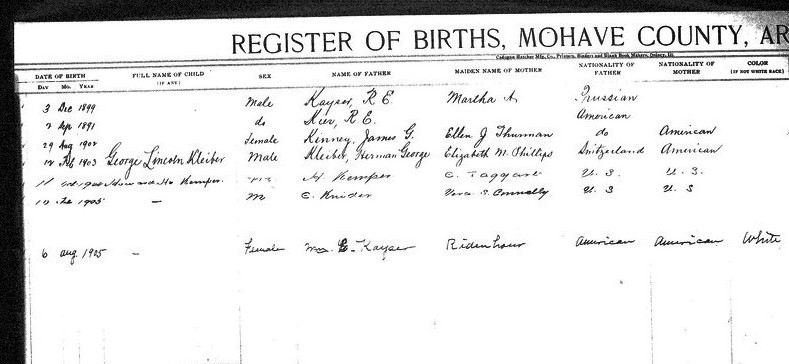 REGISTER OF BIRTHS, MOHAVE COUNTY, AR
Cadogan-Hatcher Mfg. Co., Printers, Binders and Blank Book Makers, Quincy, Ill.
DATE OF BIRTH FULL NAME OF CHILD SEX NAME OF FATHER MAIDEN NAME OF MOTHER NATIONALITY OF FATHER NATIONALITY OF MOTHER COLOR
DAY MO. YEAR (IF ANY) (IF NOT WHITE RACE)
3 Dec 1899 Male Kayser, R E. Martha A. Prussian
2 Apr 1891 do Kier, R E. American
29 Aug 1902 Female Kinney, James G. Ellen J Thurman do American
12 Feb 1903 George Lincoln Kleiber Male Kleiber, Herman George Elizabeth M. Phillips Switzerland American
11 Kemper H Kemper C. Taggart U. S. U. S.
12 1905 — M C. Knider Vera S. Connelly U. S U. S
6 aug. 1925 — Female E. Kayser Ridenhour American American White